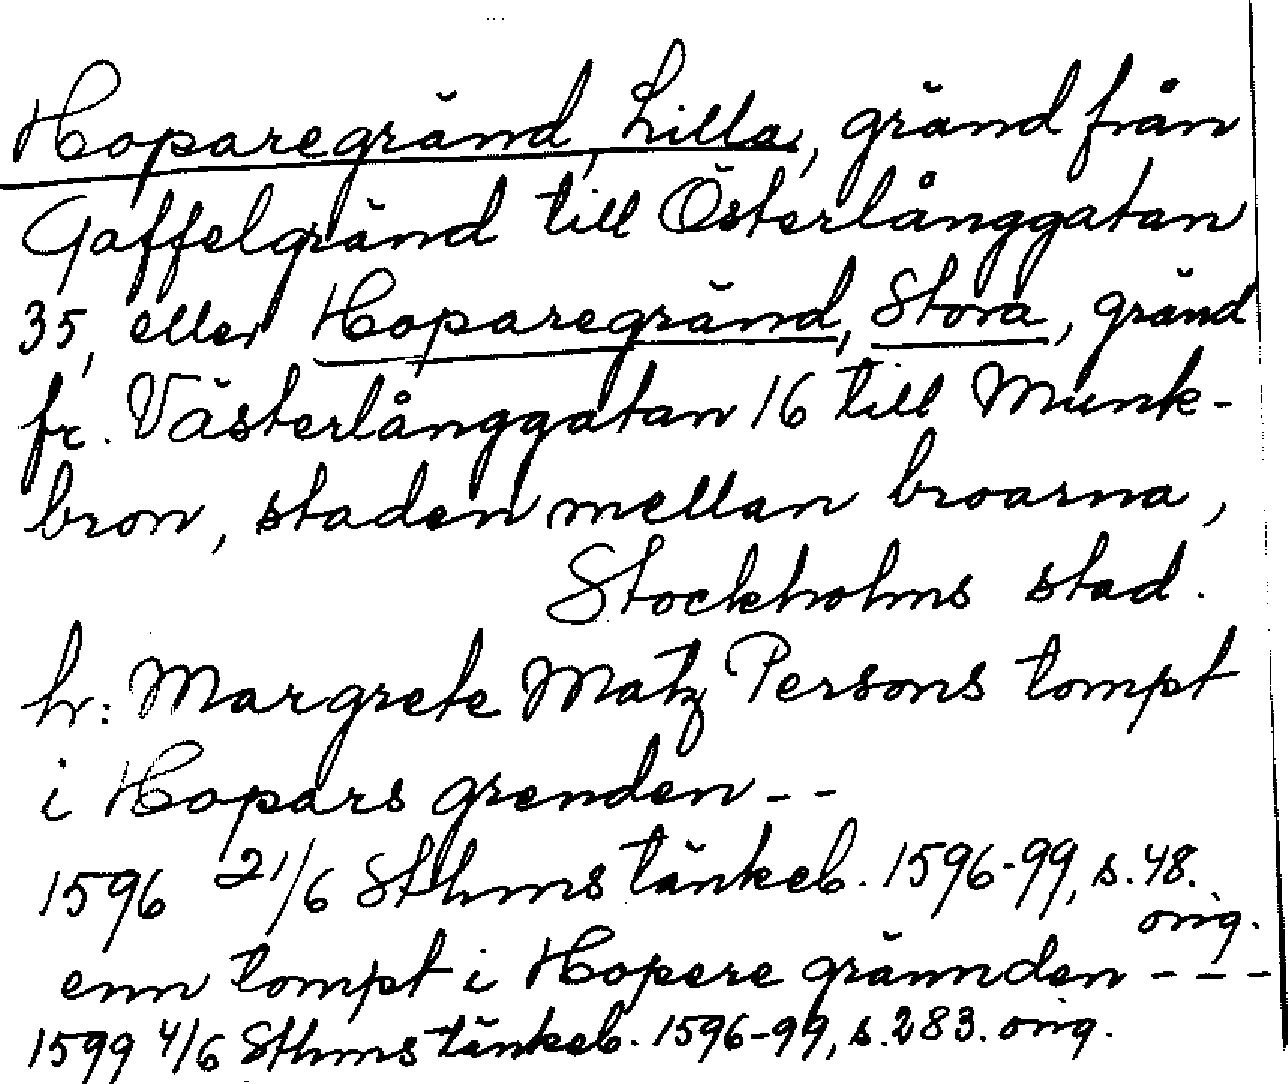 Hoparegränd, Lilla, gränd från
Gaffelgränd till Österlånggatan
35, eller Hoparegränd, Stora, gränd
fr. Västerlånggatan 16 till Munk-
bron, staden mellan broarna,
Stockholms stad.
hr: Margrete Matz Persons tompt
i Hopars grenden --
1596 21/6 Sthms tänkeb. 1596-99, s. 48.
orig.
enn tompt i Hopere grännden ---
1599 4/6 Sthms tänkeb. 1596-99, s. 283. orig.